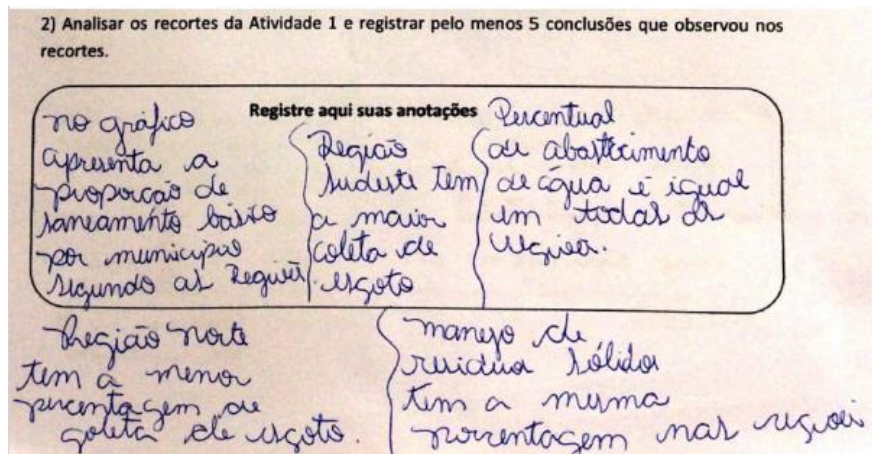 2) Analisar os recortes da Atividade 1 e registrar pelo menos 5 conclusões que observou nos
recortes.
Registre aqui suas anotações
no gráfico
apresenta a
proporção de
saneamento básico
por município
segundo as Regiões
Região
sudeste tem
a maior
coleta de
esgoto
Percentual
de abastecimento
de água é igual
em todas as
regiões.
Região norte
tem a menor
percentagem de
coleta de esgoto.
manejo de
resíduo sólidos
tem a mesma
porcentagem nas regiões